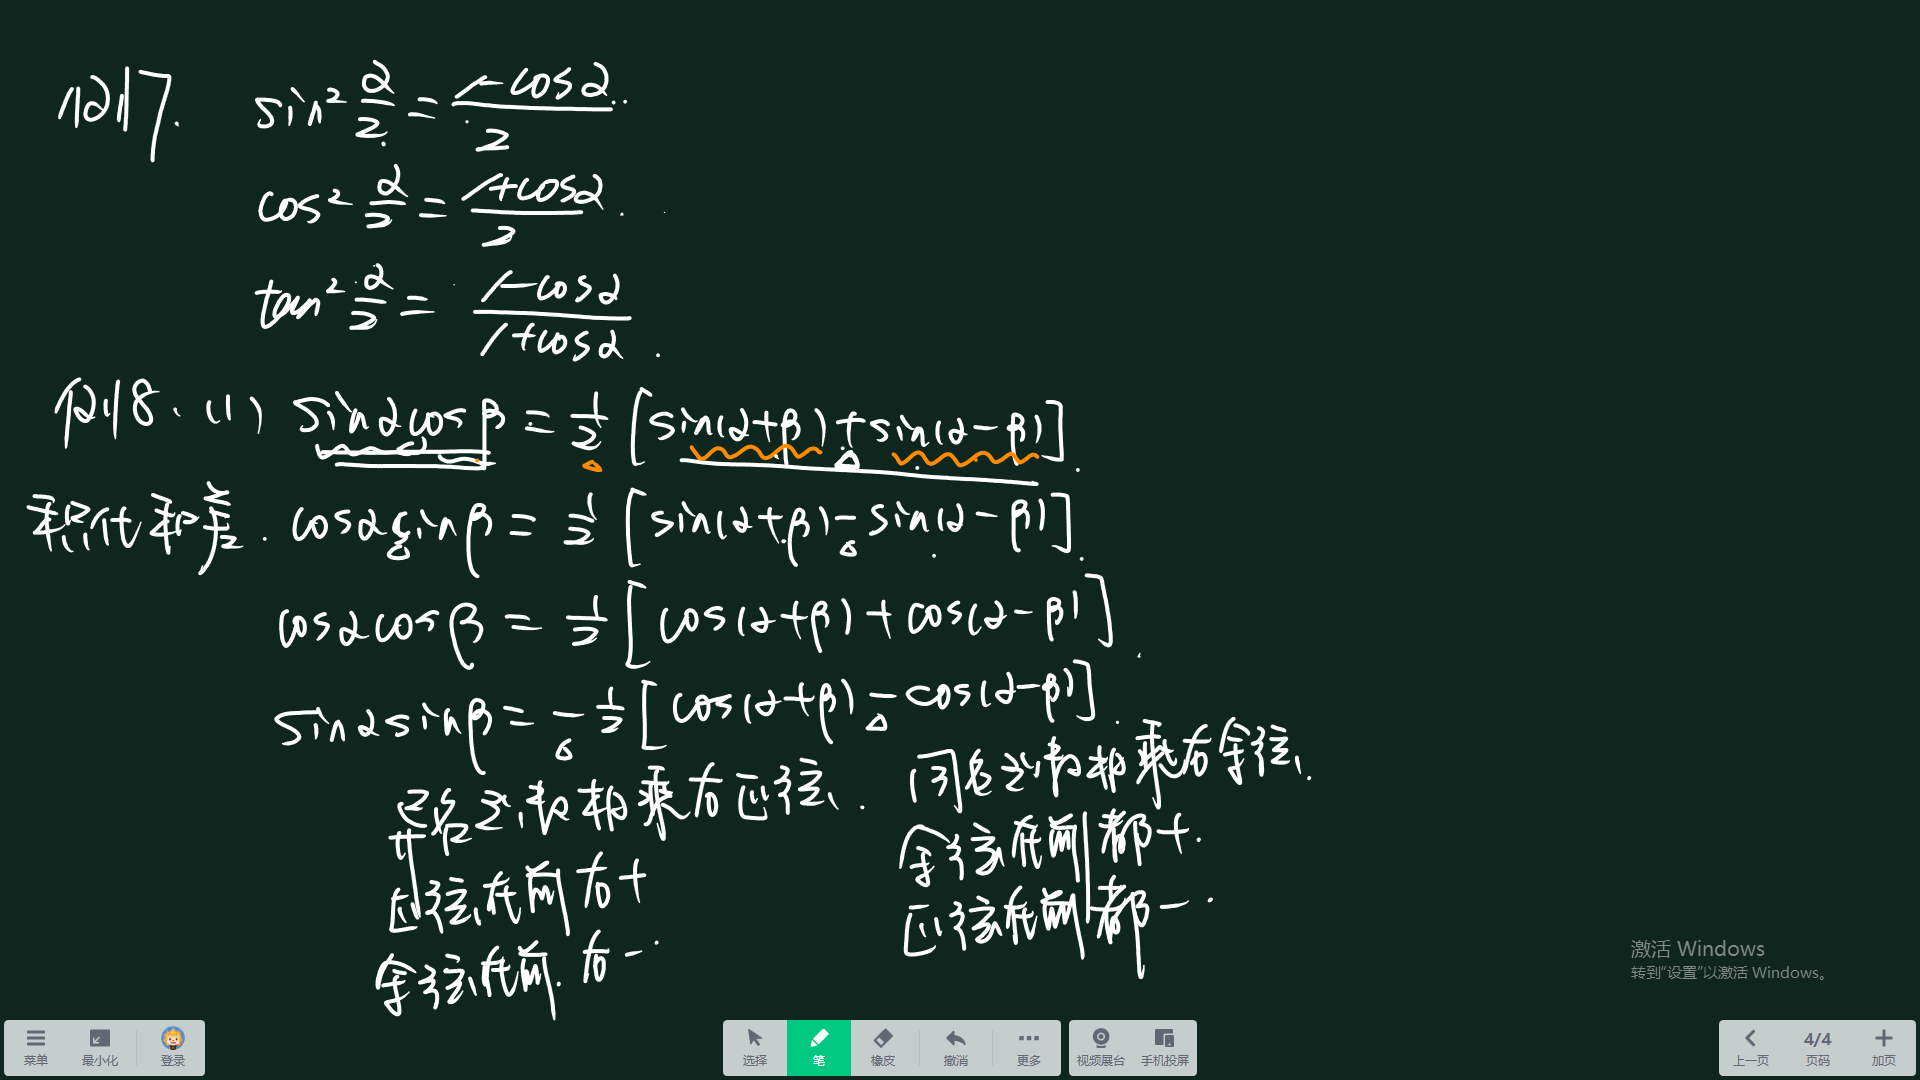 例7. sin² α/2 = (1-cosα)/2
cos² α/2 = (1+cosα)/2.
tan² α/2 = (1-cosα)/(1+cosα).
例8. (1) sinαcosβ = 1/2 [sin(α+β)+sin(α-β)].
积化和差. cosαsinβ = 1/2 [sin(α+β)-sin(α-β)].
cosαcosβ = 1/2 [cos(α+β)+cos(α-β)].
sinαsinβ = -1/2 [cos(α+β)-cos(α-β)].
异名函数相乘右正弦.
正弦在前右+
余弦在前.右-.
同名函数相乘右余弦.
余弦在前都+.
正弦在前都-.
激活 Windows
转到“设置”以激活 Windows。
菜单
最小化
登录
选择
笔
橡皮
撤消
更多
视频展台
手机投屏
上一页
4/4
页码
加页